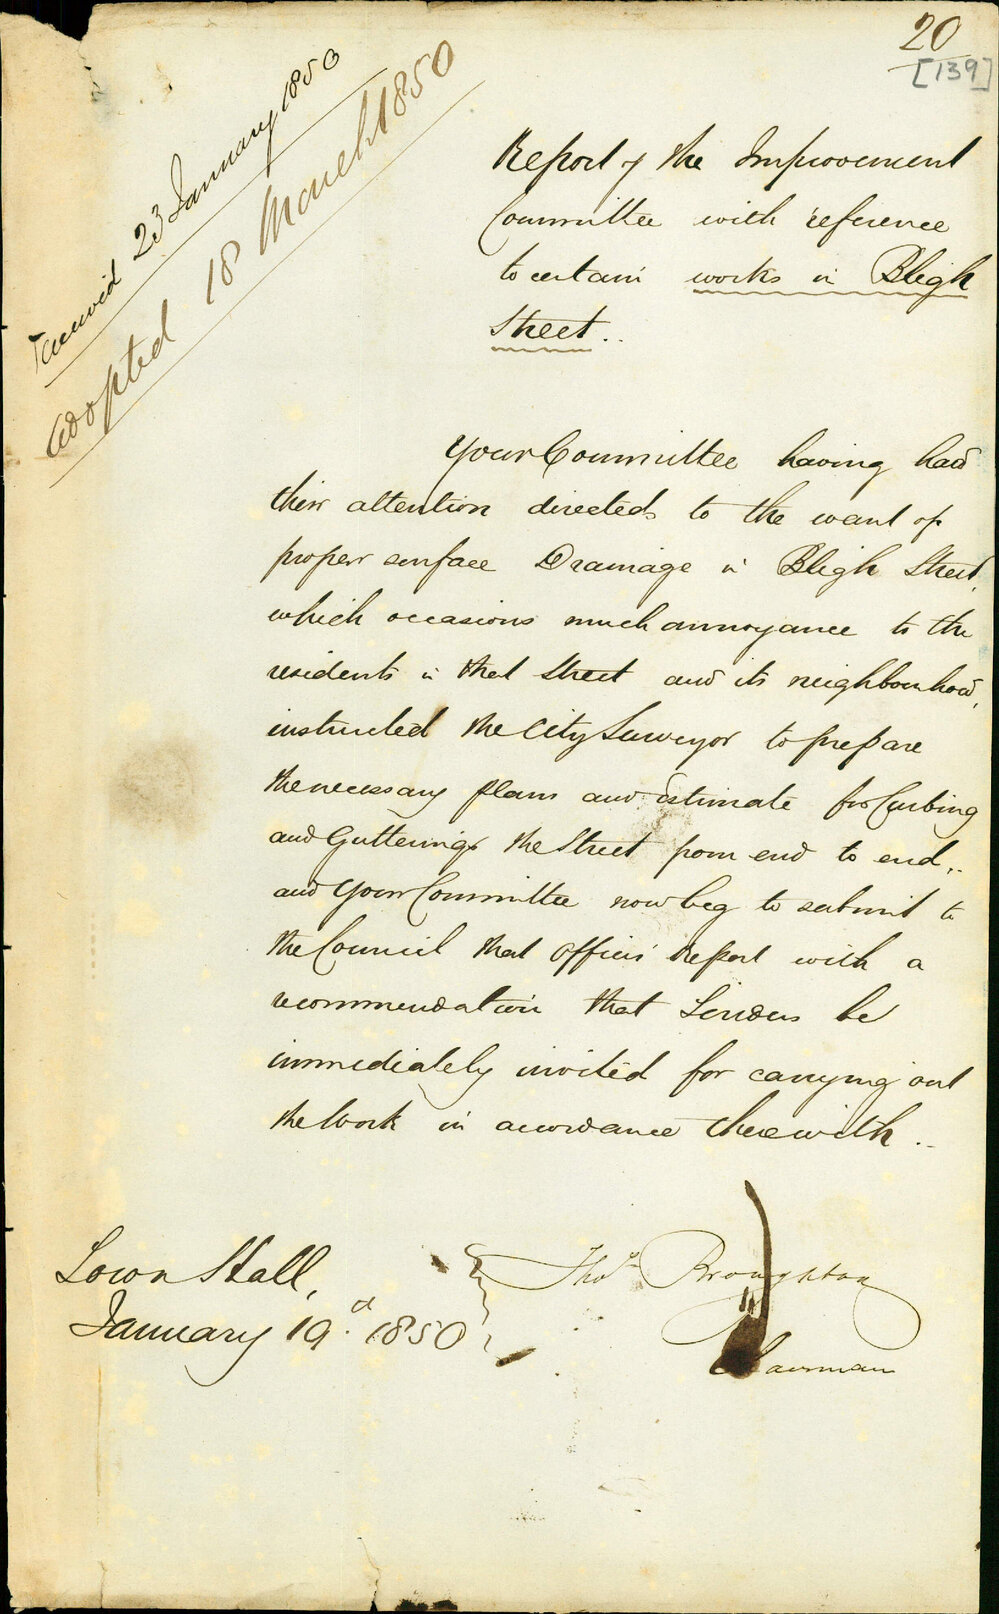 20
[139]
Received 23 January 1850
Adopted 18 March 1850
Report of the Improvement
Committee with reference
to certain works in Bligh
Street..
Your Committee having had
their attention directed to the want of
proper surface Drainage in Bligh Street,
which occasions much annoyance to the
residents in that Street and its neighbourhood,
instructed the City Surveyor to prepare
the necessary plans and Estimate for Curbing
and Guttering the Street from end to end,
and Your Committee now beg to submit to
the Council that Officers Report with a
recommendation that Tenders be
immediately invited for carrying out
the Work in accordance therewith..
Town Hall,
January 19.d 1850
Thos. Broughton
Chairman